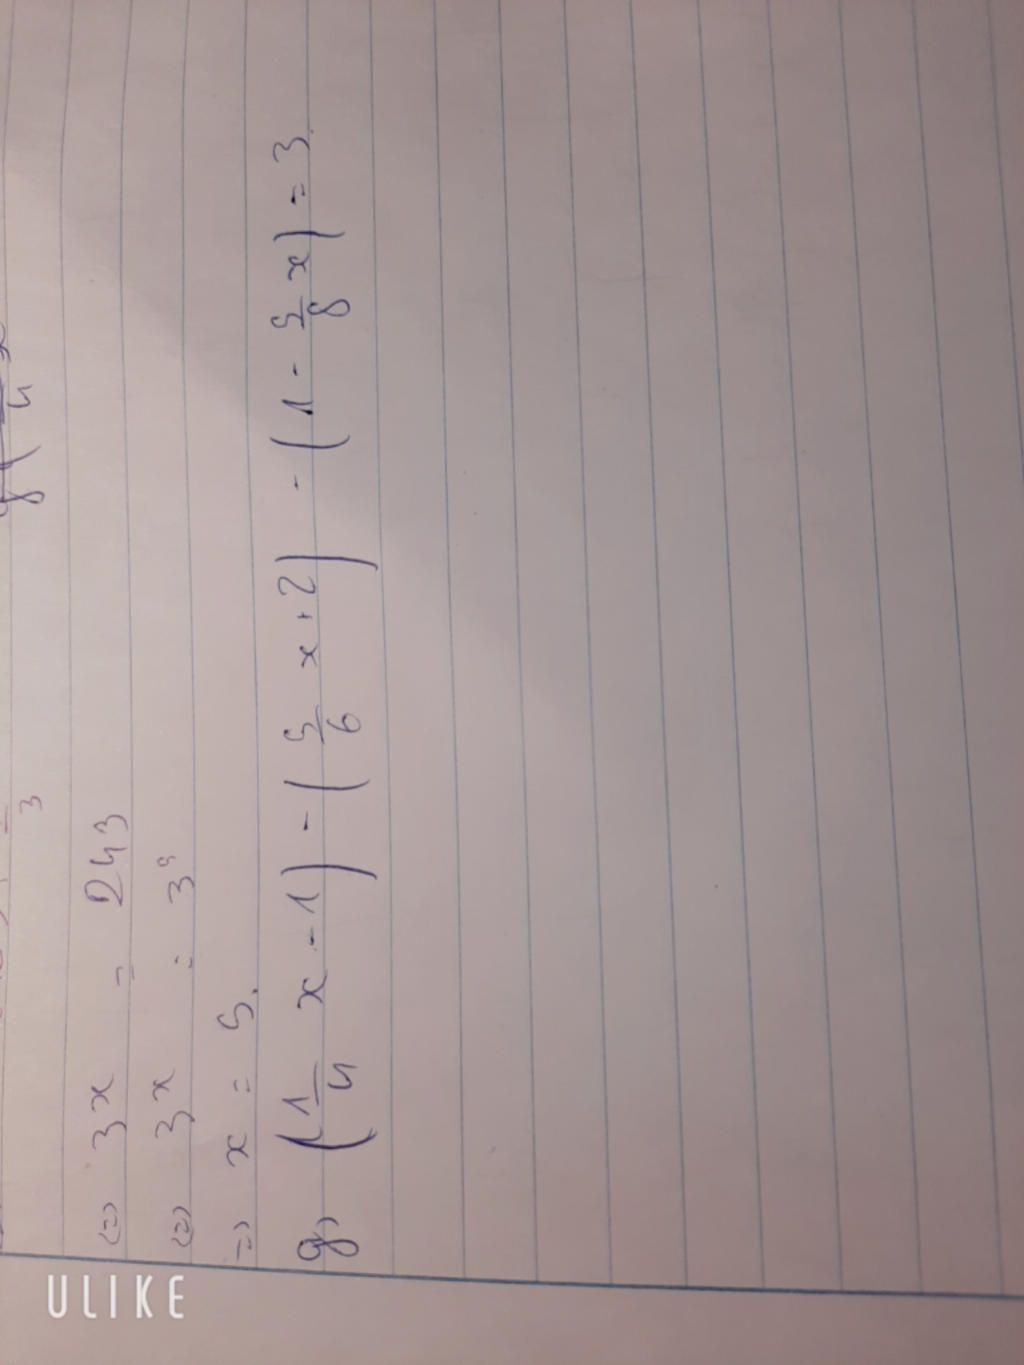 3
<=> 3x = 243
<=> 3x = 3⁵
=> x = 5.
g, (1/4 x - 1) - (5/6 x + 2) - (1 - 5/8 x) = 3.
ULIKE